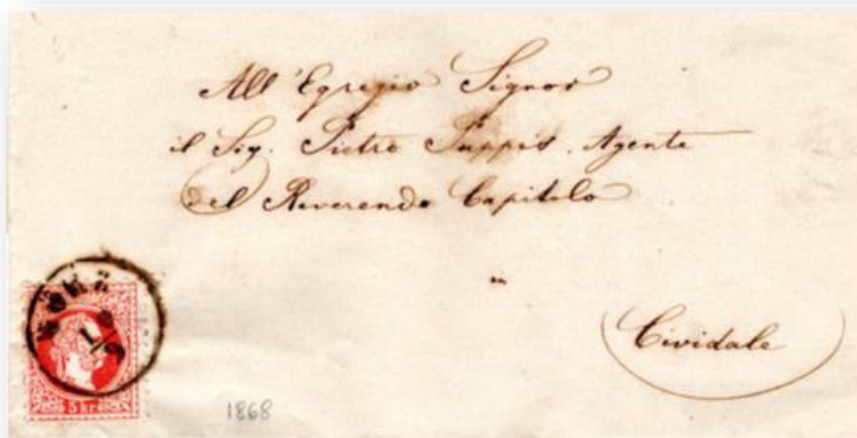 All'Egregio Signor
il Sig. Pietro Puppis, Agente
del Reverendo Capitolo
in
Cividale
GÖRZ
5 kr.
1868